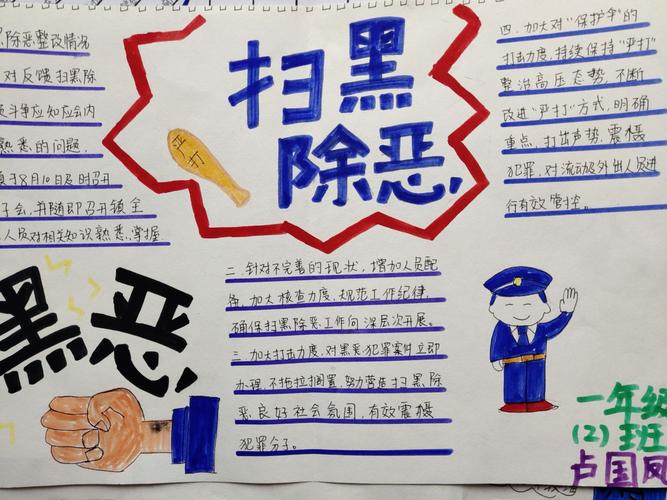 扫黑
除恶
严打
除恶整改情况
对反馈扫黑除
斗争应知应会内
熟悉的问题,
于8月10日及时召开
子会,并随即召开镇全
人员对相关知识熟悉,掌握
黑恶
二、针对不完善的现状,增加人员配
备,加大核查力度,规范工作纪律,
确保扫黑除恶工作向深层次开展。
三、加大打击力度,对黑恶犯罪案件立即
办理,不拖拉搁置,努力营造扫黑除
恶良好社会氛围,有效震摄
犯罪分子。
四、加大对“保护伞”的
打击力度,持续保持“严打”
整治高压态势,不断
改进“严打”方式,明确
重点,打出声势,震摄
犯罪,对流动及外出人员进
行有效管控。
一年级
(2)班
卢国风